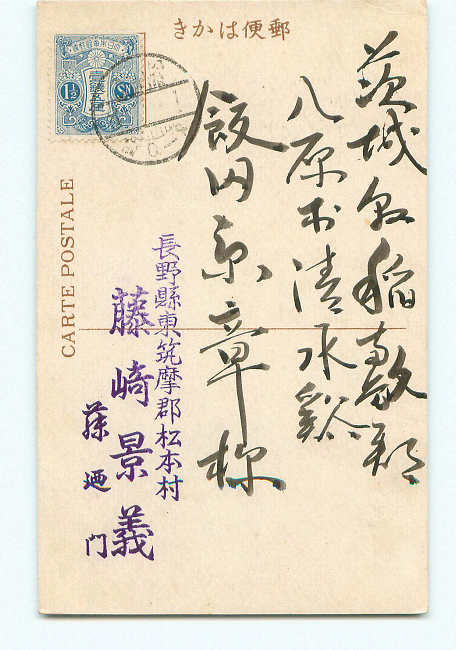 きかは便郵
茨城縣稲敷郡
八原村清水谿
飯田景章様
長野縣東筑摩郡松本村
藤崎景義
門
CARTE POSTALE
1½ SN